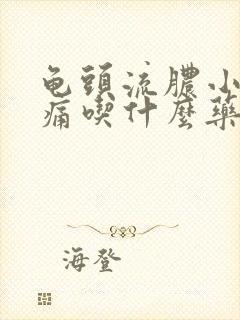 龟頭流膿小
痛喫什麼藥
海登